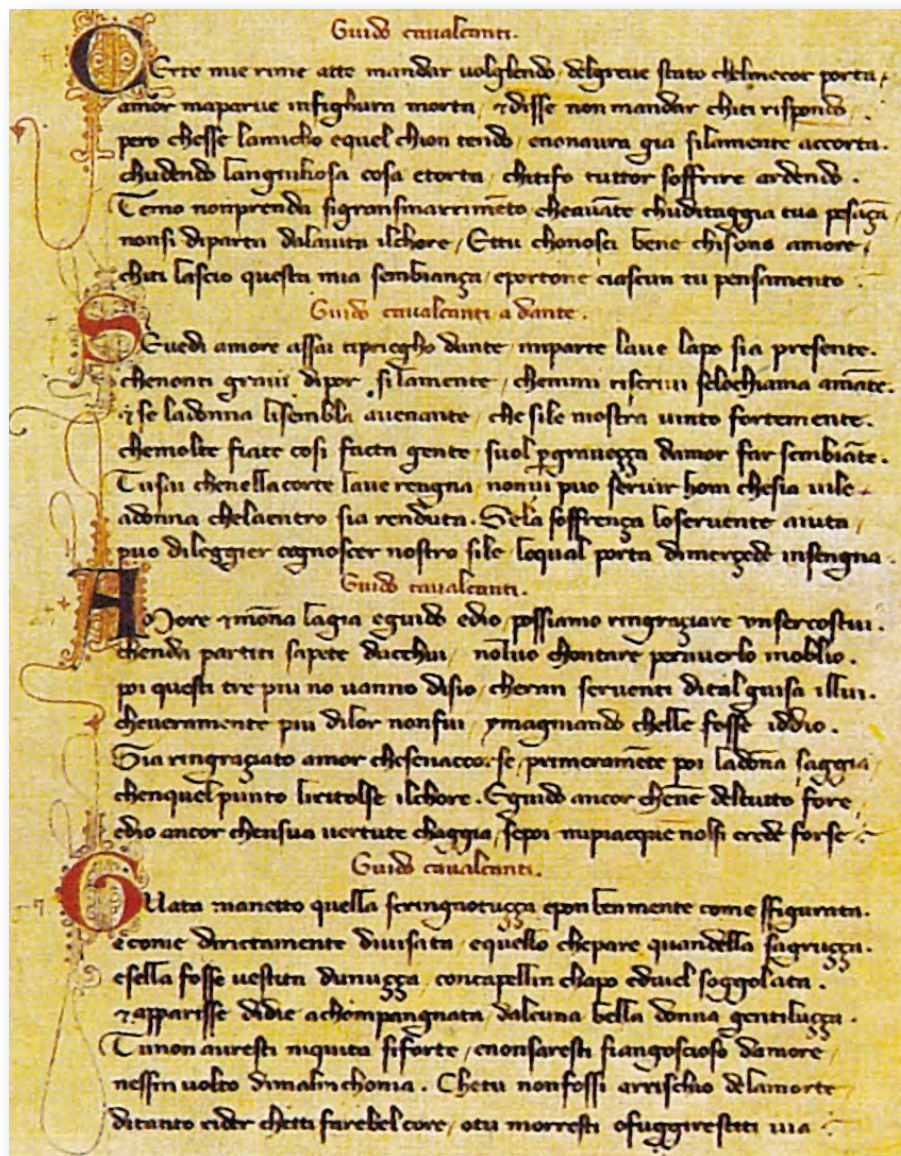 Guido cavalcanti.
CErte mie rime atte mandar volglendo / delgreve stato chelmecor porta /
amor maparve infighura morta / ⁊disse non mandar chiti rispondo
pero chesse lamicho equel chion tendo / enonaura gia silamente accorta.
chudendo langiuliosa cosa etorta / chitifo tuttor soffrire ardendo .
Temo nonprenda sigransmarrimēto cheavāte chuditaggia tua pesāça
nonsi diparta dalavita ilchore / Ettu chonosci bene chisono amore /
chiti lascio questa mia sembiança / eportone ciascun tu pensamento :
Guido cavalcanti a dante .
SEvedi amore assai tipriegho dante / inparte lave lapo sia presente.
chenonti gravi dipor silamente / chemmi riscrivi selochiama amāte.
⁊ se ladonna lisembla avenante / che sile mostra vinto fortemente.
chemolte fiate cosi facta gente / suol ꝑgraveçça damor far sembiāte.
Tusai chenellacorte lave rengna / nonvi puo servir hom chesia vile
adonna chelaentro sia renduta . Sela soffrença loservente aiuta /
puo dileggier cognoscer nostro sile / loqual porta dimerçede insengna .
Guido cavalcanti .
AMore ⁊mōna lagia eguido edio / possiamo ringraçiare unsercostui .
chenda partiti sapete dacchui / nolvo chontare peraverlo inoblio .
poi questi tre piu no vanno disio / cheran serventi dital guisa illui .
cheveramente piu dilor nonfui / ymaginando chelle fosse iddio .
Sia ringraçiato amor chesenaccorse / primeramēte poi ladōna saggia /
chenquel punto liritolse ilchore . Eguido ancor chenē deltutto fore /
edio ancor chensua vertute chaggia / sepoi mipiacque nolsi crede forse :
Guido cavalcanti .
GUata manetto quella scringnotuçça eponi benmente come sfigurata .
⁊come dirictamente divisata / equello chepare quandella sagruçça .
esella fosse vestita dunuçça / concapellin chapo edivel soggolata .
⁊ apparisse didie achompangnata / dalcuna bella donna gentiluçça .
Tunon avresti niquita siforte / enonsaresti siangoscioso damore /
nessin volto dimalinchonia . Chetu nonfossi arrischio delamorte
ditanto rider chetti farebel core / otu morresti ofuggirestiti via :